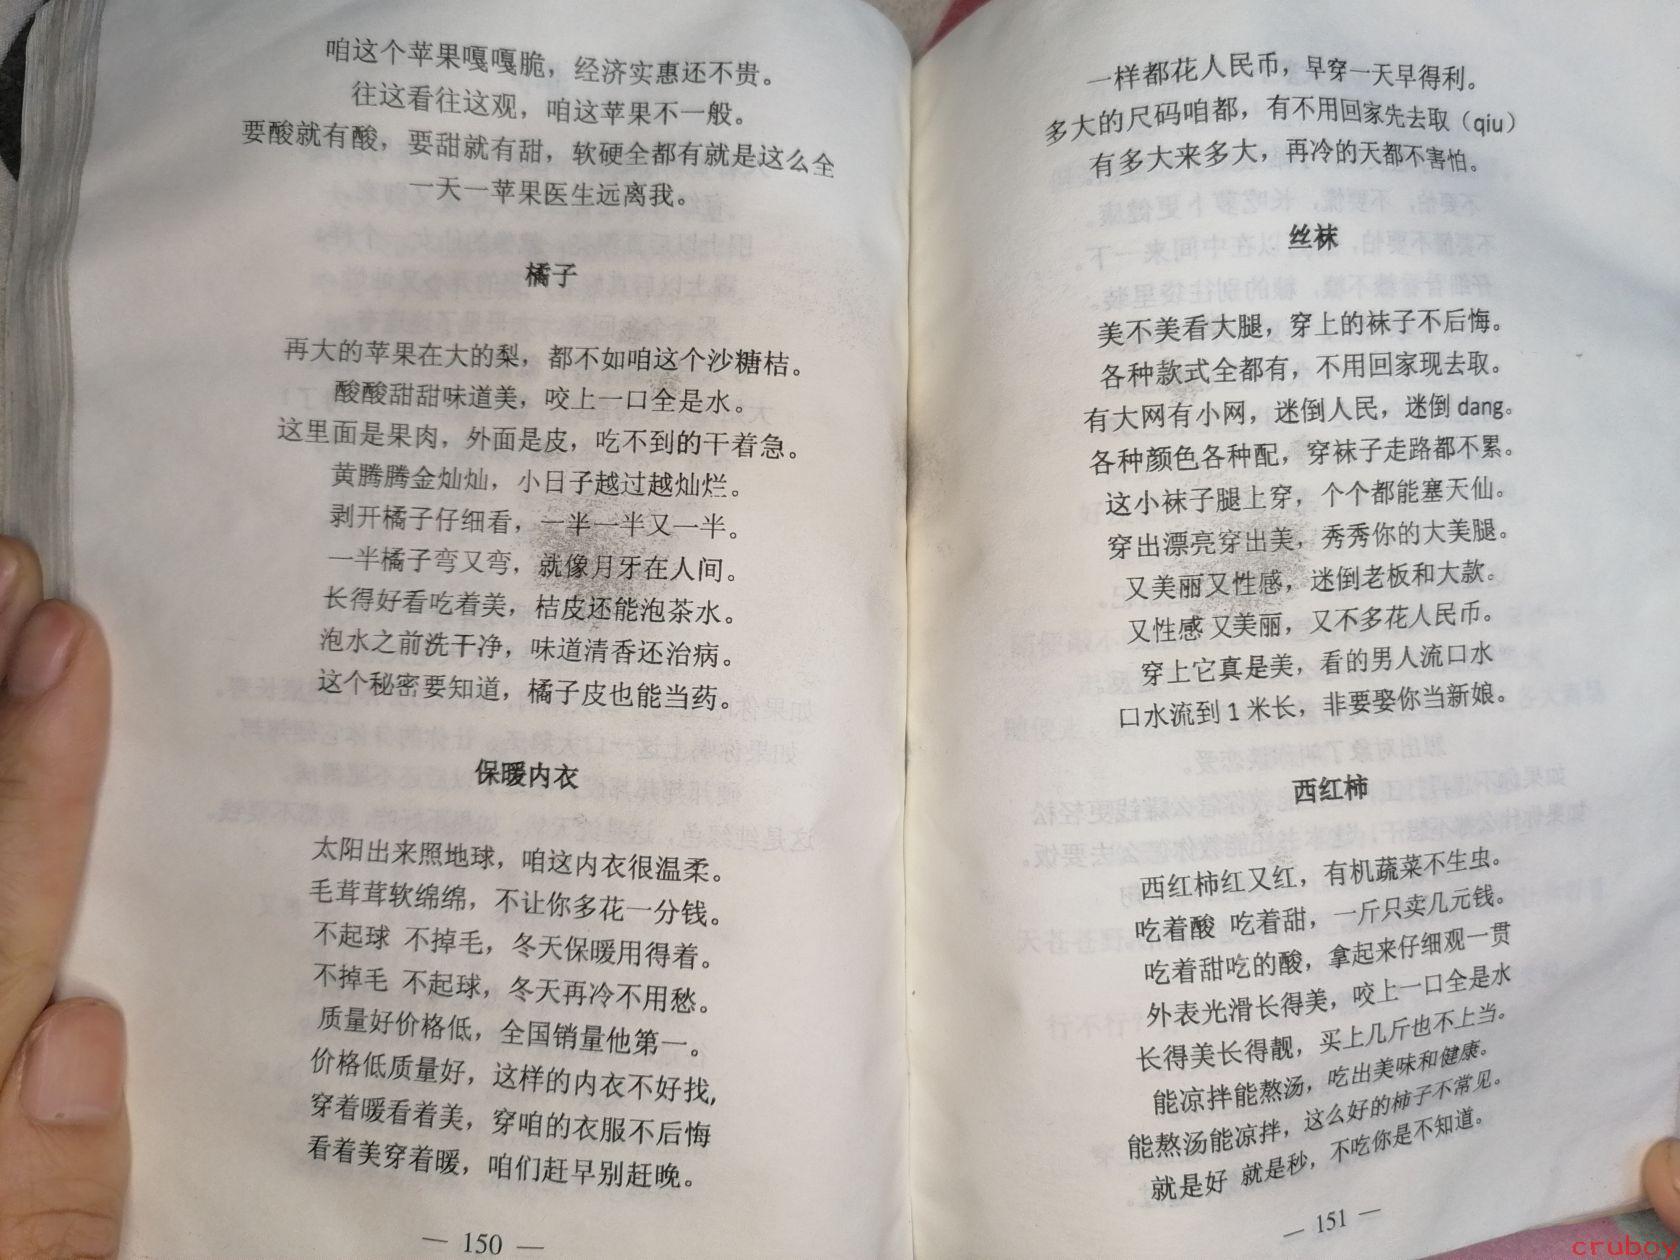 咱这个苹果嘎嘎脆，经济实惠还不贵。
往这看往这观，咱这苹果不一般。
要酸就有酸，要甜就有甜，软硬全都有就是这么全
一天一苹果医生远离我。
橘子
再大的苹果在大的梨，都不如咱这个沙糖桔。
酸酸甜甜味道美，咬上一口全是水。
这里面是果肉，外面是皮，吃不到的干着急。
黄腾腾金灿灿，小日子越过越灿烂。
剥开橘子仔细看，一半一半又一半。
一半橘子弯又弯，就像月牙在人间。
长得好看吃着美，桔皮还能泡茶水。
泡水之前洗干净，味道清香还治病。
这个秘密要知道，橘子皮也能当药。
保暖内衣
太阳出来照地球，咱这内衣很温柔。
毛茸茸软绵绵，不让你多花一分钱。
不起球 不掉毛，冬天保暖用得着。
不掉毛 不起球，冬天再冷不用愁。
质量好价格低，全国销量他第一。
价格低质量好，这样的内衣不好找,
穿着暖看着美，穿咱的衣服不后悔
看着美穿着暖，咱们赶早别赶晚。
— 150 —
一样都花人民币，早穿一天早得利。
多大的尺码咱都，有不用回家先去取（qiu）
有多大来多大，再冷的天都不害怕。
丝袜
美不美看大腿，穿上的袜子不后悔。
各种款式全都有，不用回家现去取。
有大网有小网，迷倒人民，迷倒 dang。
各种颜色各种配，穿袜子走路都不累。
这小袜子腿上穿，个个都能塞天仙。
穿出漂亮穿出美，秀秀你的大美腿。
又美丽又性感，迷倒老板和大款。
又性感 又美丽，又不多花人民币。
穿上它真是美，看的男人流口水
口水流到 1 米长，非要娶你当新娘。
西红柿
西红柿红又红，有机蔬菜不生虫。
吃着酸 吃着甜，一斤只卖几元钱。
吃着甜吃的酸，拿起来仔细观一贯
外表光滑长得美，咬上一口全是水
长得美长得靓，买上几斤也不上当。
能凉拌能熬汤，吃出美味和健康。
能熬汤能凉拌，这么好的柿子不常见。
就是好 就是秒，不吃你是不知道。
— 151 —
cruboy